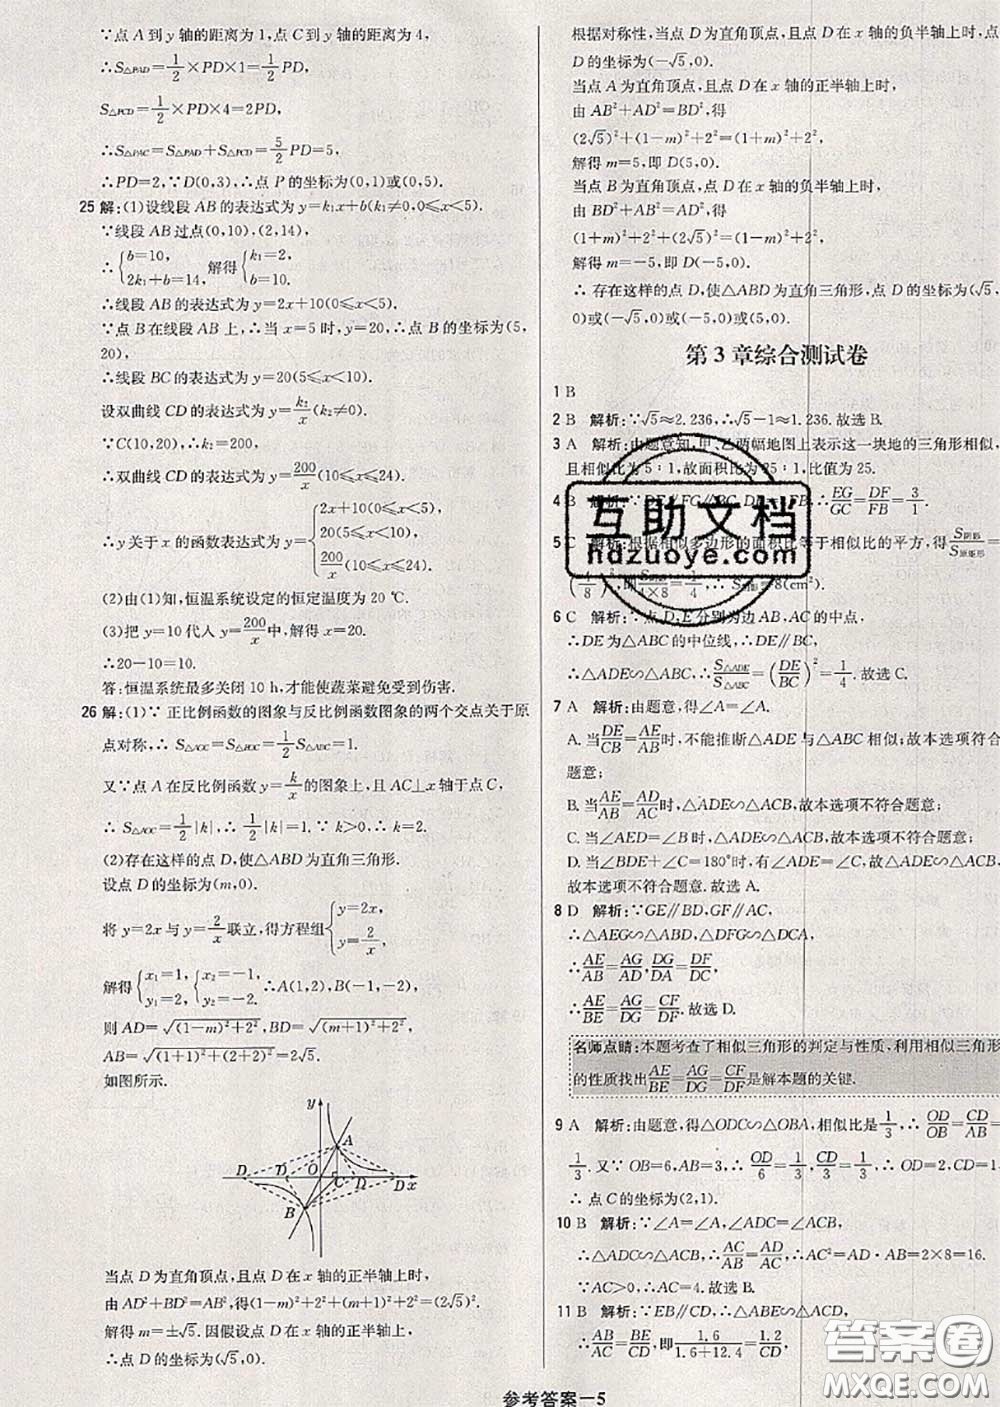 ∵点 A 到 y 轴的距离为 1,点 C 到 y 轴的距离为 4,
∴S△PAD=1/2×PD×1=1/2PD,
S△PCD=1/2×PD×4=2PD,
∴S△PAC=S△PAD+S△PCD=5/2PD=5,
∴PD=2,∵D(0,3),∴点 P 的坐标为(0,1)或(0,5).
25 解:(1)设线段 AB 的表达式为 y=k₁x+b(k₁≠0,0≤x<5).
∵线段 AB 过点(0,10),(2,14),
∴{b=10, 2k₁+b=14, 解得{k₁=2, b=10.
∴线段 AB 的表达式为 y=2x+10(0≤x<5).
∵点 B 在线段 AB 上,∴当 x=5 时,y=20,∴点 B 的坐标为(5,
20),
∴线段 BC 的表达式为 y=20(5≤x<10).
设双曲线 CD 的表达式为 y=k₂/x(k₂≠0).
∵C(10,20),∴k₂=200,
∴双曲线 CD 的表达式为 y=200/x(10≤x≤24).
∴y 关于 x 的函数表达式为 y={2x+10(0≤x<5), 20(5≤x<10), 200/x(10≤x≤24).
(2)由(1)知,恒温系统设定的恒定温度为 20 ℃.
(3)把 y=10 代入 y=200/x 中,解得 x=20.
∴20-10=10.
答:恒温系统最多关闭 10 h,才能使蔬菜避免受到伤害.
26 解:(1)∵ 正比例函数的图象与反比例函数图象的两个交点关于原
点对称,∴ S△AOC=S△BOC=1/2S△ABC=1.
又∵点 A 在反比例函数 y=k/x 的图象上,且 AC⊥x 轴于点 C,
∴ S△AOC=1/2|k|,∴ 1/2|k|=1.∵ k>0,∴ k=2.
(2)存在这样的点 D,使△ABD 为直角三角形.
设点 D 的坐标为(m,0).
将 y=2x 与 y=2/x 联立,得方程组{y=2x, y=2/x,
解得{x₁=1, y₁=2,{x₂=-1, y₂=-2.∴A(1,2),B(-1,-2),
则 AD=√(1-m)²+2²,BD=√(m+1)²+2²,
AB=√(1+1)²+(2+2)²=2√5.
如图所示.
y
A
D D O C D D x
B
当点 D 为直角顶点,且点 D 在 x 轴的正半轴上时,
由 AD²+BD²=AB²,得(1-m)²+2²+(m+1)²+2²=(2√5)².
解得 m=±√5.因假设点 D 在 x 轴的正半轴上,
∴点 D 的坐标为(√5,0).
根据对称性,当点 D 为直角顶点,且点 D 在 x 轴的负半轴上时,点
D 的坐标为(-√5,0).
当点 A 为直角顶点,且点 D 在 x 轴的正半轴上时,
由 AB²+AD²=BD²,得
(2√5)²+(1-m)²+2²=(1+m)²+2².
解得 m=5,即 D(5,0).
当点 B 为直角顶点,且点 D 在 x 轴的负半轴上时,
由 BD²+AB²=AD²,得
(1+m)²+2²+(2√5)²=(1-m)²+2².
解得 m=-5,即 D(-5,0).
∴ 存在这样的点 D,使△ABD 为直角三角形,点 D 的坐标为(√5,
0)或(-√5,0)或(-5,0)或(5,0).
第 3 章综合测试卷
1 B
2 B 解析:∵√5≈2.236,∴√5-1≈1.236.故选 B.
3 A 解析:由题意知,甲、乙两幅地图上表示这一块地的三角形相似,
且相似比为 5∶1,故面积比为 25∶1,比值为 25.
4 B 解析:∵DE∥FG∥BC,DE= FB,∴EG/GC=DF/FB=3/1.
5 C 解析:根据相似多边形的面积比等于相似比的平方,得S阴影/S原矩形=
(4/8)²,即 /4×8=1/4,∴S阴影=8(cm²).
6 C 解析:∵点 D,E 分别为边 AB,AC 的中点,
∴DE 为△ABC 的中位线,∴DE∥BC,
∴△ADE∽△ABC,∴S△ADE/S△ABC=(DE/BC)²=1/4.故选 C.
7 A 解析:由题意,得∠A=∠A,
A.当DE/CB=AE/AB时,不能推断△ADE 与△ABC 相似;故本选项符合
题意;
B.当AE/AB=AD/AC时,△ADE∽△ACB,故本选项不符合题意;
C.当∠AED=∠B 时,△ADE∽△ACB,故本选项不符合题意;
D.当∠BDE+∠C=180°时,有∠ADE=∠C,故△ADE∽△ACB,
故本选项不符合题意.故选 A.
8 D 解析:∵GE∥BD,GF∥AC,
∴△AEG∽△ABD,△DFG∽△DCA,
∴AE/AB=AG/AD,DG/DA=DF/DC,
∴AE/BE=AG/DG=CF/DF.故选 D.
名师点睛:本题考查了相似三角形的判定与性质,利用相似三角形
的性质找出AE/BE=AG/DG=CF/DF是解本题的关键.
9 A 解析:由题意,得△ODC∽△OBA,相似比是1/3,∴ OD/OB=CD/AB=
1/3.又∵ OB=6,AB=3,∴OD/6=1/3,CD/3=1/3,∴ OD=2,CD=1.
∴ 点 C 的坐标为(2,1).
10 B 解析:∵∠A=∠A,∠ADC=∠ACB,
∴△ADC∽△ACB,∴AC/AB=AD/AC,∴AC²=AD·AB=2×8=16.
∵AC>0,∴AC=4.故选 B.
11 B 解析:∵EB∥CD,∴△ABE∽△ACD,
∴AB/AC=BE/CD,即1.6/1.6+12.4=1.2/CD,
参考答案—5
互助文档
hdzuoye.com
答案圈
MXQE.COM